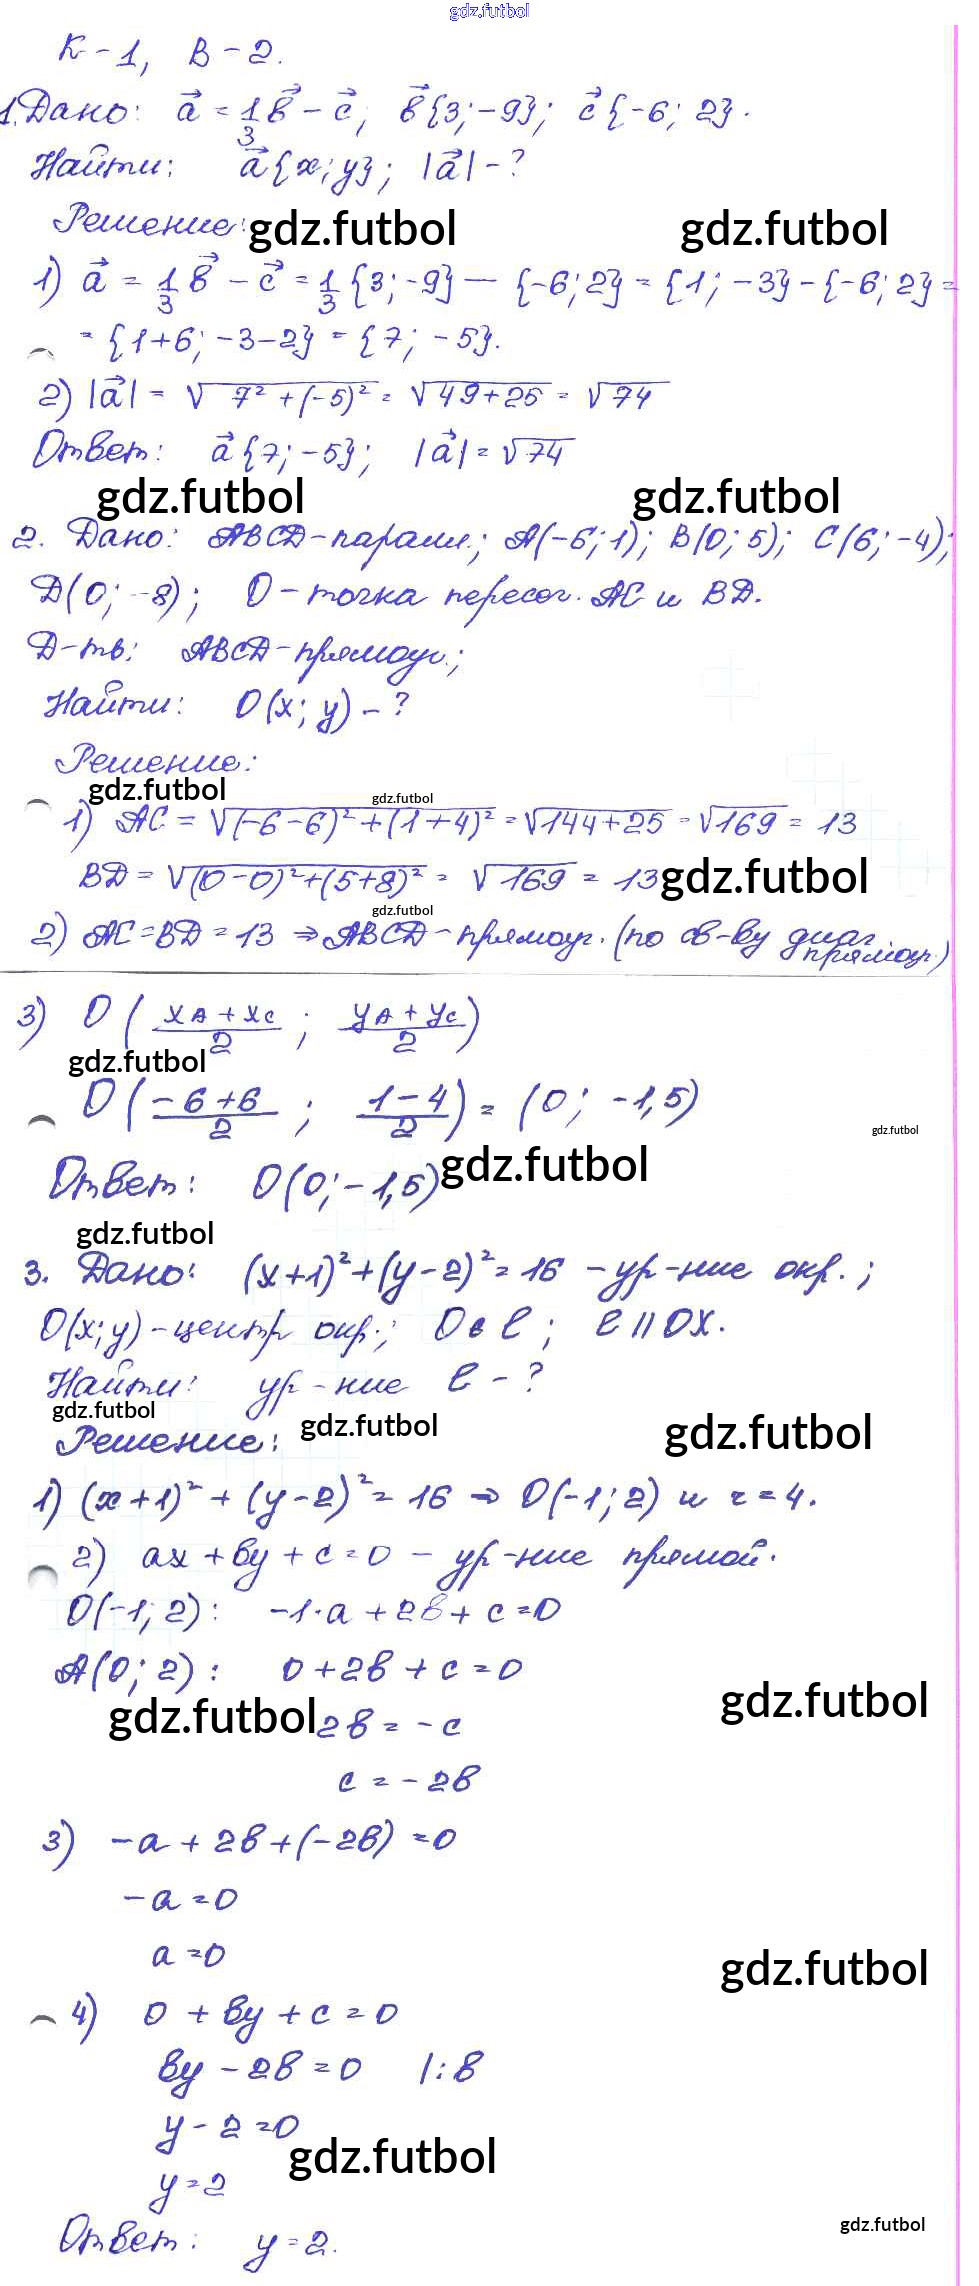 gdz.futbol
К-1, В-2.
1. Дано: a⃗ = 1/3 b⃗ - c⃗; b⃗{3; -9}; c⃗{-6; 2}.
Найти: a⃗{x; y}; |a⃗| - ?
Решение: gdz.futbol gdz.futbol
1) a⃗ = 1/3 b⃗ - c⃗ = 1/3 {3; -9} — {-6; 2} = {1; -3} - {-6; 2} =
= {1+6; -3-2} = {7; -5}.
2) |a⃗| = √(7² + (-5)²) = √(49+25) = √74
Ответ: a⃗{7; -5}; |a⃗| = √74
gdz.futbol gdz.futbol
2. Дано: ABCD-паралл.; A(-6; 1); B(0; 5); C(6; -4);
D(0; -8); O - точка пересеч. AC и BD.
Д-ть: ABCD-прямоуг.;
Найти: O(x; y) - ?
Решение:
gdz.futbol gdz.futbol
1) AC = √((-6-6)² + (1+4)²) = √(144+25) = √169 = 13
BD = √((0-0)² + (5+8)²) = √169 = 13 gdz.futbol
gdz.futbol
2) AC = BD = 13 ⇒ ABCD - прямоуг. (по св-ву диаг.
прямоуг.)
3) O((xA + xC)/2 ; (yA + yC)/2)
gdz.futbol
O((-6+6)/2 ; (1-4)/2) = (0; -1,5)
gdz.futbol
Ответ: O(0; -1,5) gdz.futbol
gdz.futbol
3. Дано: (x+1)² + (y-2)² = 16 - ур-ние окр.;
O(x; y) - центр окр.; O ∈ l; l || OX.
Найти: ур-ние l - ?
gdz.futbol gdz.futbol gdz.futbol
Решение:
1) (x+1)² + (y-2)² = 16 ⇒ O(-1; 2) и r = 4.
2) ax + by + c = 0 - ур-ние прямой.
O(-1; 2): -1·a + 2b + c = 0
A(0; 2): 0 + 2b + c = 0
gdz.futbol 2b = -c gdz.futbol
c = -2b
3) -a + 2b + (-2b) = 0
-a = 0
a = 0
gdz.futbol
4) 0 + by + c = 0
by - 2b = 0 |: b
y - 2 = 0
gdz.futbol
y = 2
gdz.futbol
Ответ: y = 2.